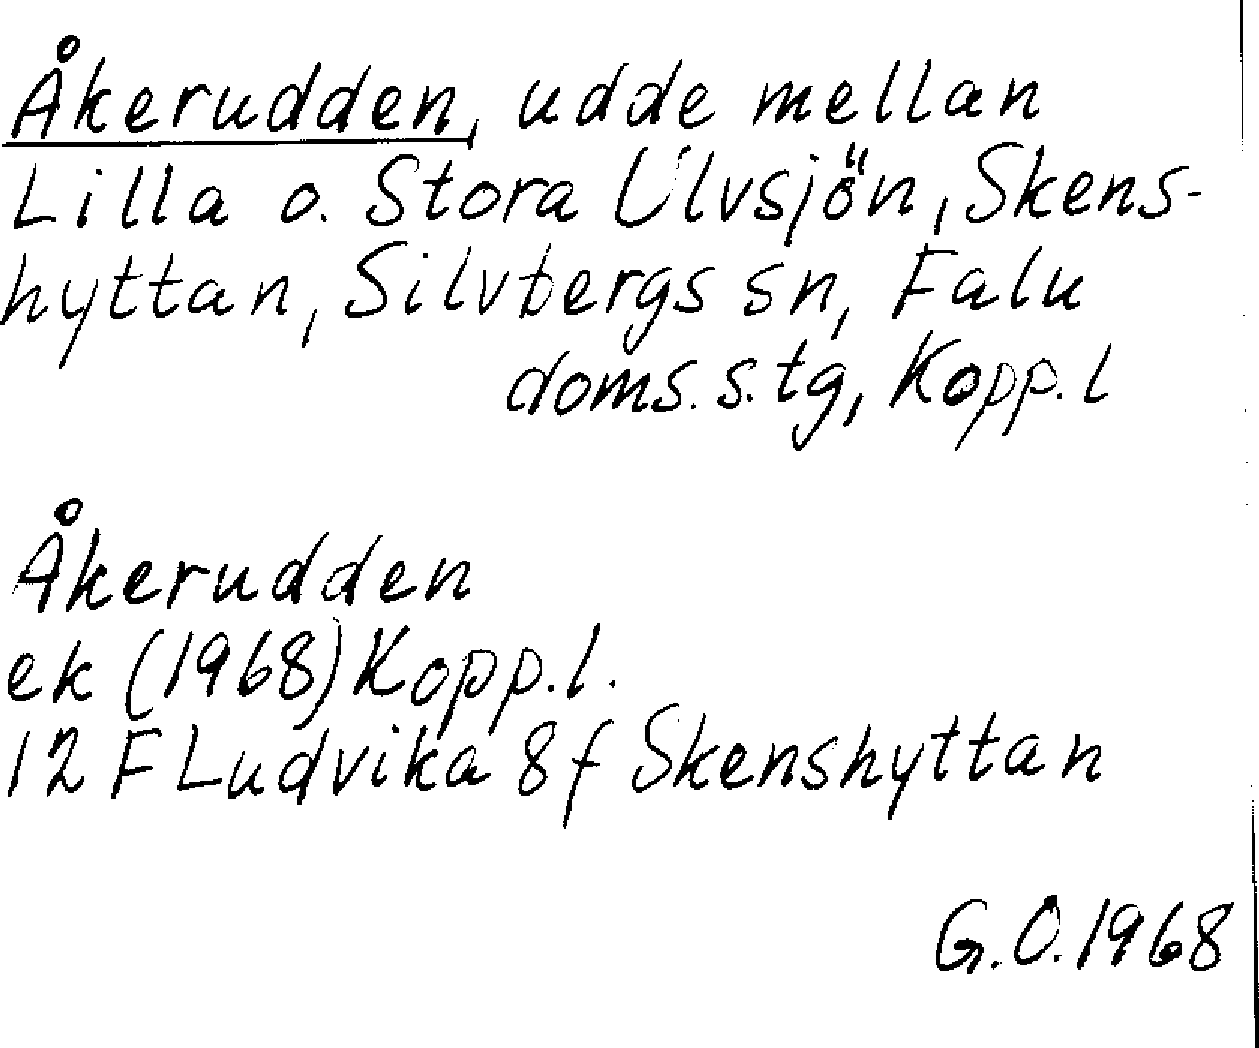 Åkerudden, udde mellan
Lilla o. Stora Ulvsjön, Skens-
hyttan, Silvbergs sn, Falu
doms. s. tg, Kopp. l
Åkerudden
ek (1968) Kopp. l.
12 F Ludvika 8f Skenshyttan
G.O. 1968